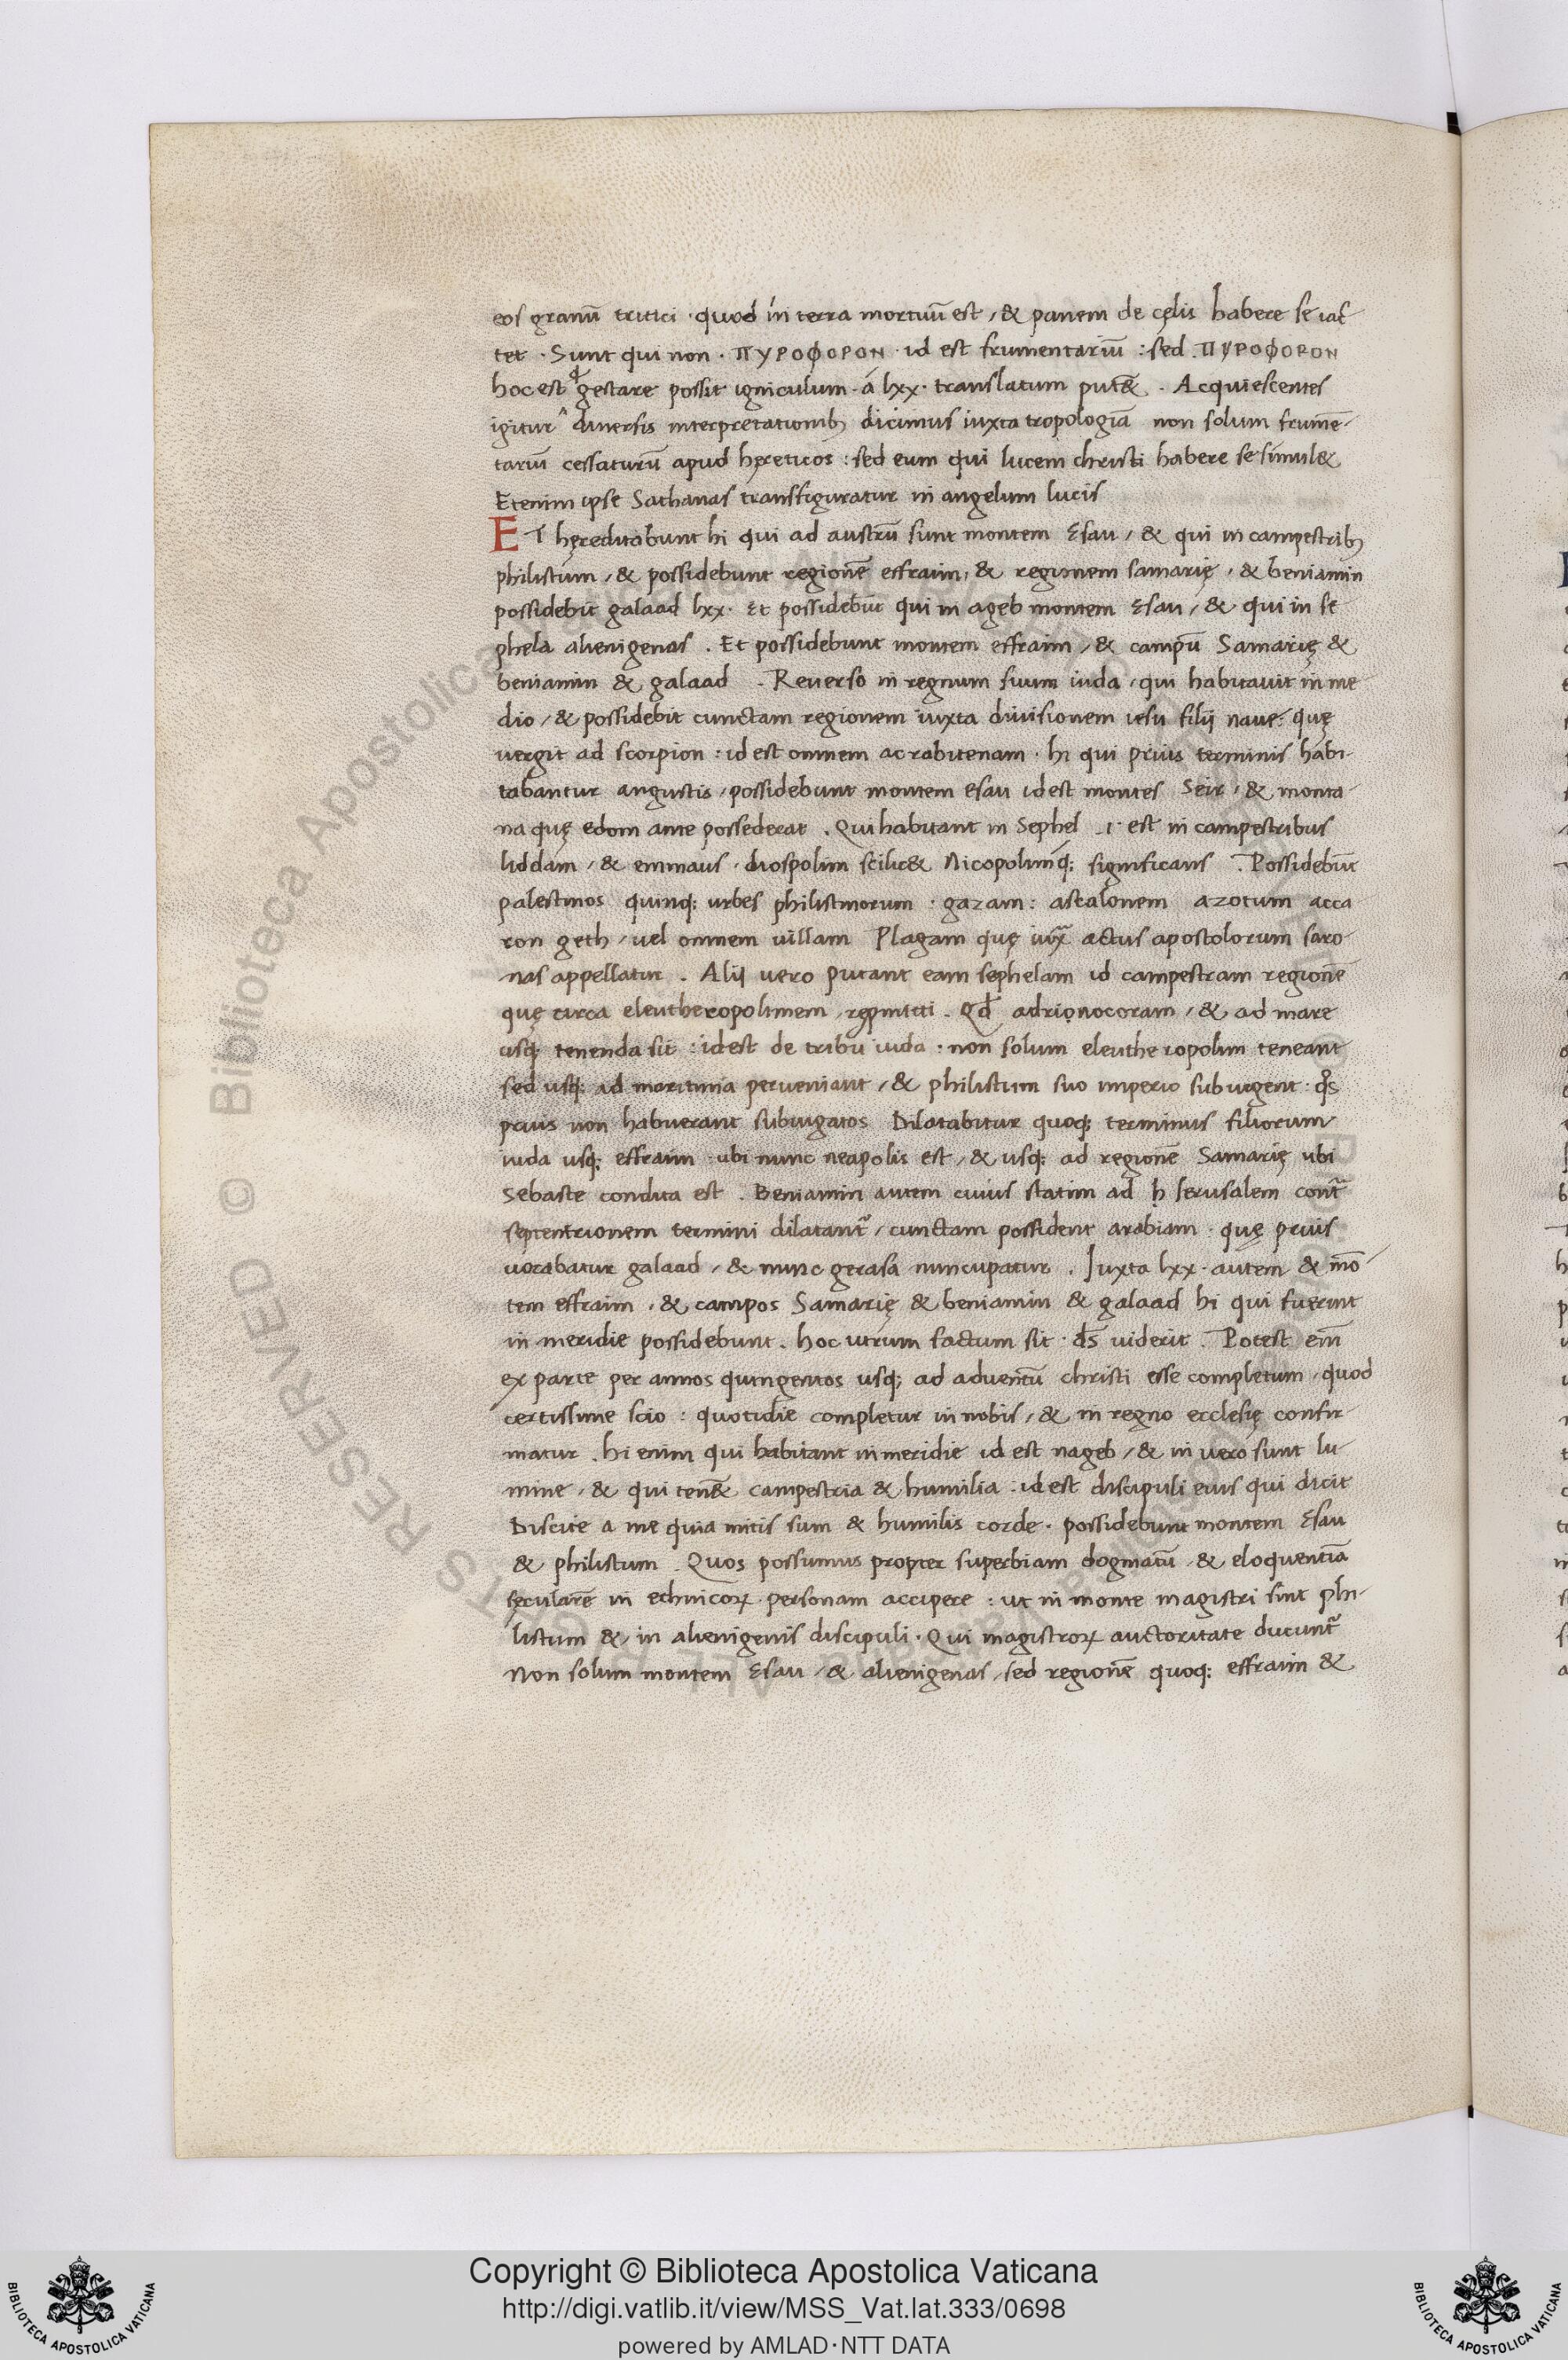 eos granũ tritici · quod in terra mortuũ est, & panem de cęlis habere se iac̃
tet · Sunt qui non · ΠΥΡΟΦΟΡΟΝ · id est frumentariũ : sed · ΠΥΡΟΦΟΡΟΝ
hoc est gestare possit igniculum · á lxx · translatum put& · Acquiescentes
igitur diuersis interpretationib; dicimus iuxta tropologiã non solum frumẽ-
tariũ cessaturũ apud hęreticos : sed eum qui lucem christi habere se simul&
Etenim ipse Sathanas transfiguratur in angelum lucis
ET hęreditabunt hi qui ad austrũ sunt montem Esau, & qui in campestrib;
philistim, & possidebunt regionẽ effraim, & regimem samarię, & beniamin
possidebit galaad lxx · Et possidebũt qui in ageb montem Esau, & qui in se
phela alienigenas . Et possidebunt montem effraim, & campũ Samarię &
beniamin & galaad . Reuerso in regnum suum iuda, qui habitauit in me
dio, & possidebit cunctam regionem iuxta diuisionem iesu filij naue : quę
uergit ad scorpion : id est omnem acrabitenam · hi qui prius terminis habi-
tabantur angustis, possidebunt montem esau id est montes Seir, & monta-
na quę edom ante possederat . Qui habitant in Sephel .i. est in campestribus
liddam, & emmaus, diospolim scilic& Nicopolimq; significans . Possidebũt
palestinos quinq; urbes philistinorum · gazam : ascalonem azotum acca
ron geth, uel omnem uillam Plagam quę iuxᷓ actus apostolorum saro-
nas appellatur . Alij uero putant eam sephelam id campestram regionẽ
quę circa eleutheropolimem, repmitti . Qd̃ adrionocoram, & ad mare
usq; tenenda sit : id est de tribu iuda · non solum eleutheropolim teneant
sed usq; ad maritima perueniant, & philistim suo imperio subiugent : qͦs
prius non habuerant subiugatos Dilatabitur quoq; terminus filiorum
iuda usq; effraim ubi nunc neapolis est, & usq; ad regionẽ Samarię ubi
Sebaste condita est . Beniamin autem cuius statim ad h Ierusalem contᷓ
septentrionem termini dilatantᷣ, cunctam possident arabiam · quę prius
uocabatur galaad, & nunc gerasa nuncupatur . Iuxta lxx · autem & mõ-
tem effraim, & campos Samarię & beniamin & galaad hi qui fuerint
in meridie possidebunt . hoc utrum factum sit · d̃s uiderit . Potest em̃
ex parte per annos quingentos usq; ad aduentũ christi esse completum, quod
certissime scio : quotidie completur in nobis, & in regno ecclesię confir-
matur . Hi enim qui habitant in meridie id est nageb, & in uero sunt lu-
mine, & qui ten& campestria & humilia : id est discipuli eius qui dicit
Discite a me quia mitis sum & humilis corde · possidebunt montem Esau
& philistim . Quos possumus propter superbiam dogmatũ, & eloquentiã
sęcularẽ in ethnicoꝝ personam accipere : ut in monte magistri sint phi-
listim & in alienigenis discipuli · Qui magistroꝝ auctoritate ducuntᷣ
Non solum montem Esau, & alienigenas, sed regionẽ quoq; effraim &
Copyright © Biblioteca Apostolica Vaticana
http://digi.vatlib.it/view/MSS_Vat.lat.333/0698
powered by AMLAD·NTT DATA